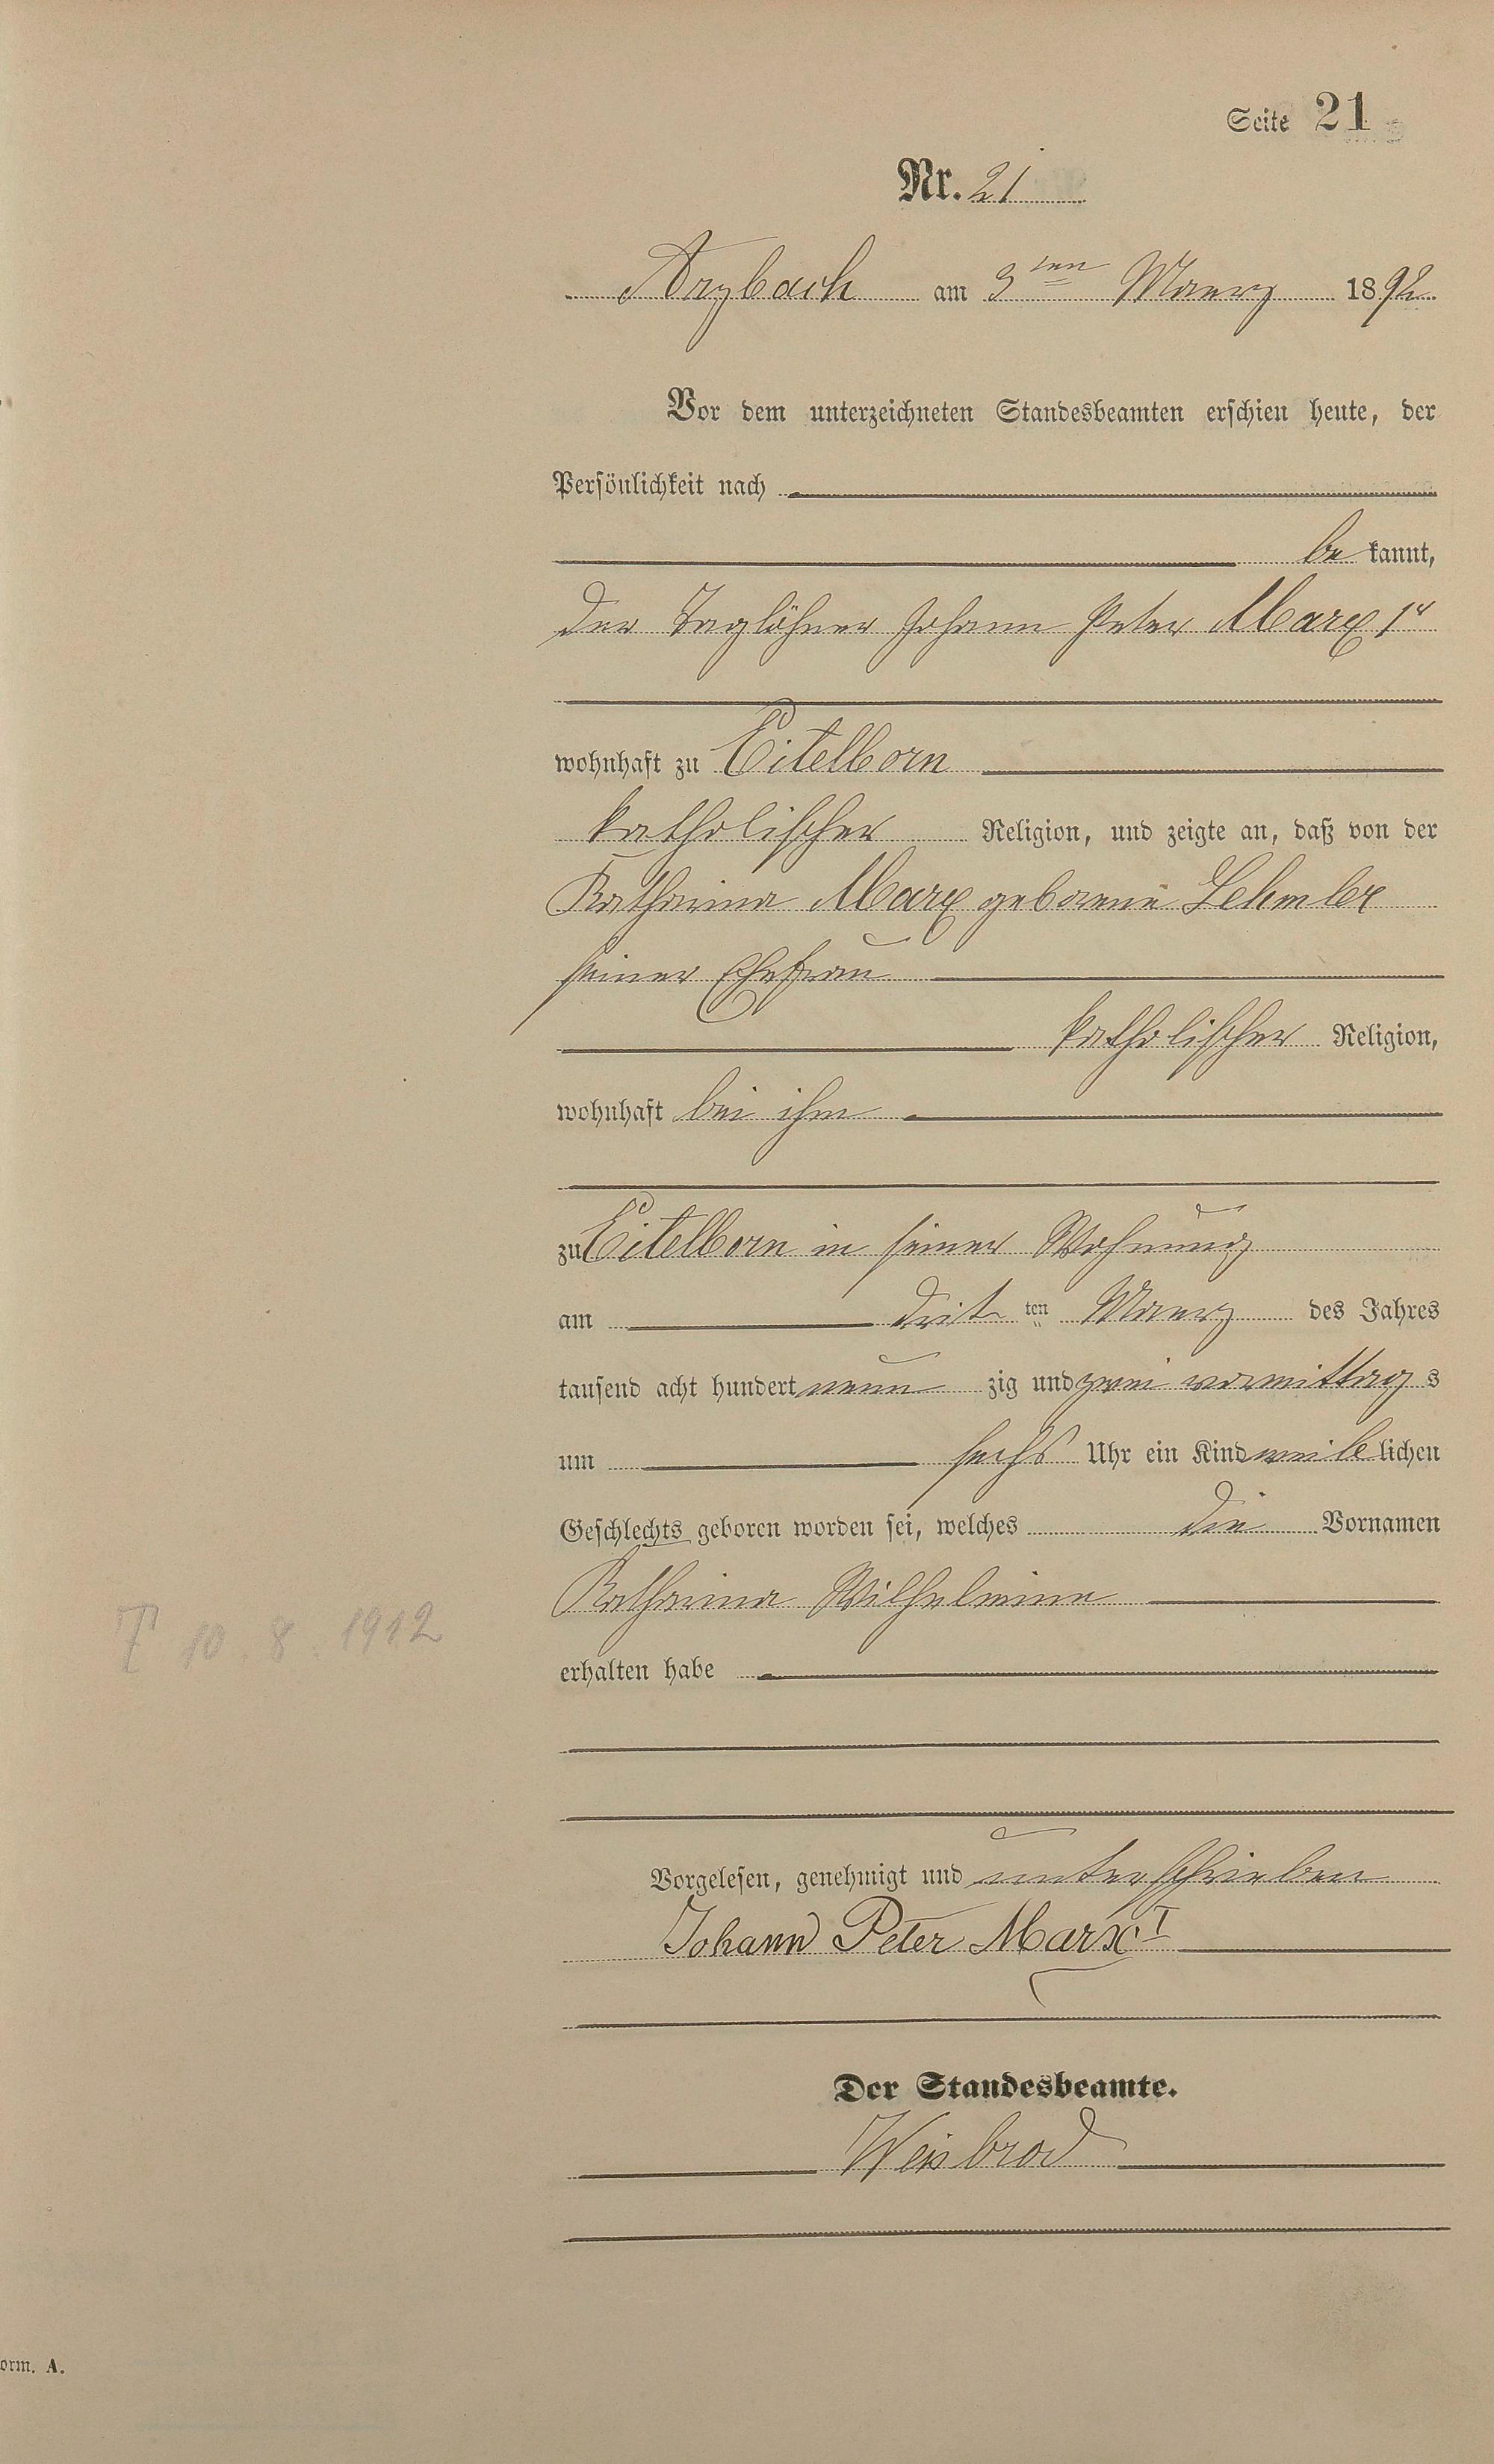 Seite 21
Nr. 21
Arzbach am 3ten Maerz 1892.
Vor dem unterzeichneten Standesbeamten erschien heute, der
Persönlichkeit nach
be kannt,
der Taglöhner Johann Peter Marx 1r
wohnhaft zu Eitelborn
katholischer Religion, und zeigte an, daß von der
Katharina Marx geborene Lehmler
seiner Ehefrau
katholischer Religion,
wohnhaft bei ihm
zu Eitelborn in seiner Wohnung
am drit ten Maerz des Jahres
tausend acht hundert neun zig und zwei vormittag s
um sechs Uhr ein Kind weib lichen
Geschlechts geboren worden sei, welches die Vornamen
Katharina Wilhelmine
T 10. 8. 1912
erhalten habe
Vorgelesen, genehmigt und unterschrieben
Johann Peter Marx I
Der Standesbeamte.
Weisbrod
orm. A.